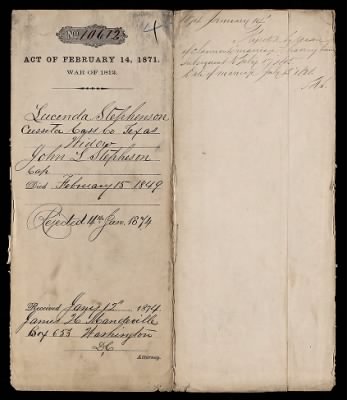 No 10612
4
ACT OF FEBRUARY 14, 1871.
WAR OF 1812.
Lucinda Stephenson
Cusseta Cass Co Texas
Widow
John L Stephenson
Cap
Died February 15 1849
Rejected 14th Jan. 1874
Received Jany 12th 1874.
James H. Mandeville
Box 653 Washington
D.C.
Attorney.
January 14th
Rejected by reason
of claimants marriage having been
subsequent to July 17 1815
Date of marriage July